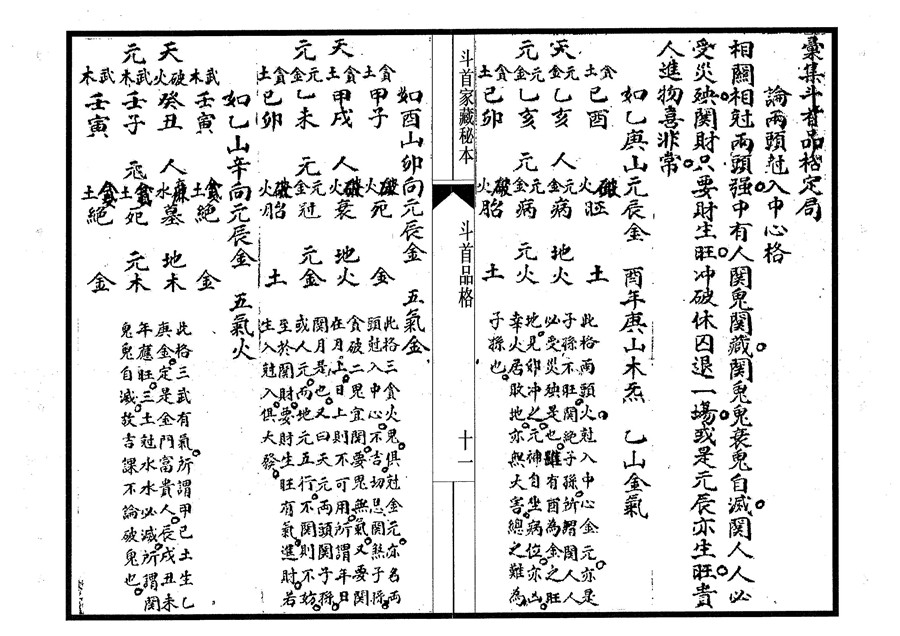 彙集斗首品格定局
論兩頭尅入中心格
相關相尅兩頭强中有人關鬼關藏關鬼鬼衰鬼自滅關人人必
受災殃關財只要財生旺冲破休囚退一塲或是元辰亦生旺貴
人進物喜非常
如乙庚山元辰金 酉年庚山木炁 乙山金氣
土貪 己酉 火破 胚 土
天 金元 乙亥 人 金元 病 地火
元 金元 乙亥 元 金元 病 元火
土貪 己卯 火破 胎 土
此格兩頭火尅入中心金元亦是
子孫不旺關絶子孫所謂關人人
必受災殃是也雖有酉為金之旺
地見卯冲之元神自坐病位亦凶
幸火居敗地亦無大害總之難為
子孫也
斗首家藏秘本
斗首品格
十一
如酉山卯向元辰金 五氣金
土貪 甲子 火破 死 金
天 土貪 甲戌 人 火破 衰 地火
元 金元 乙未 元 金元 冠 元金
土貪 己卯 火破 胎 土
此格三貪火鬼俱尅金元亦名兩
頭尅入中心不吉切忌關煞子孫
貪破二鬼宜關要鬼無氣又要關
在月上日上則不可用所謂年日
關月是也又曰天元兩頭關子孫
或人元而地元五行不關則不妨
至於關財要財生旺有氣進財若
生入尅入俱大發
如乙山辛向元辰金 五氣火
木武 壬寅 土貪 絕 金
天 火破 癸丑 人 水廉 墓 地木
元 木武 壬子 元 土貪 死 元木
木武 壬寅 土貪 絕 金
此格三武有氣所謂甲己土生乙
庚金定是金門富貴人辰戌丑未
年應旺三土尅水水必滅所謂關
鬼鬼自滅故吉課不論破鬼也